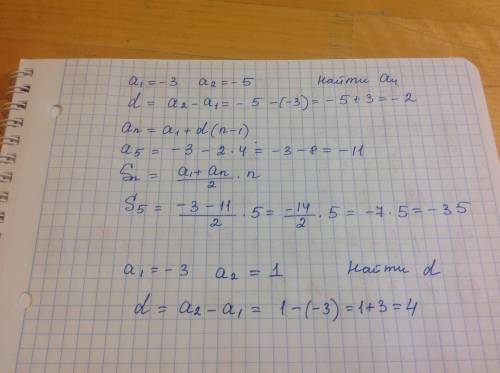 a₁ = -3 a₂ = -5 Найти a₄
d = a₂ - a₁ = -5 - (-3) = -5 + 3 = -2
aₙ = a₁ + d(n-1)
a₅ = -3 - 2 · 4 = -3 - 8 = -11
Sₙ = (a₁ + aₙ)/2 · n
S₅ = (-3 - 11)/2 · 5 = -14/2 · 5 = -7 · 5 = -35
a₁ = -3 a₂ = 1 Найти d
d = a₂ - a₁ = 1 - (-3) = 1 + 3 = 4